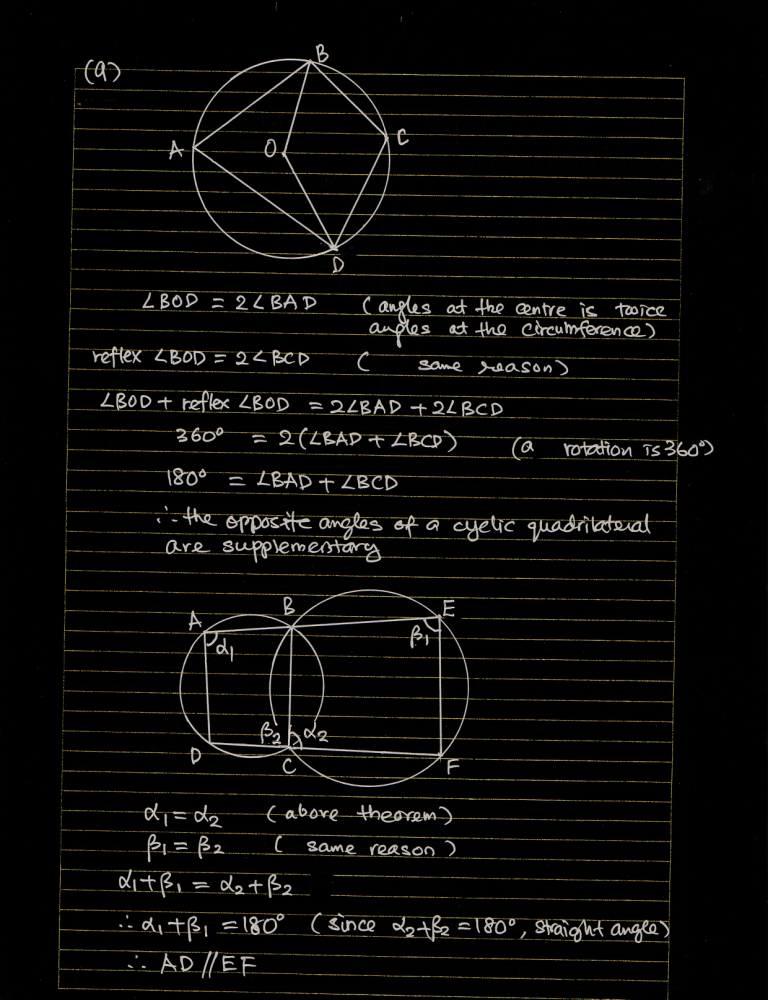 (a)
B
A
O
C
D
∠BOD = 2∠BAD (angles at the centre is twice
angles at the circumference)
reflex ∠BOD = 2∠BCD ( same reason)
∠BOD + reflex ∠BOD = 2∠BAD + 2∠BCD
360° = 2(∠BAD + ∠BCD) (a rotation is 360°)
180° = ∠BAD + ∠BCD
∴ the opposite angles of a cyclic quadrilateral
are supplementary
A B E
α₁ β₁
β₂ α₂
D C F
α₁ = α₂ (above theorem)
β₁ = β₂ ( same reason)
α₁+β₁ = α₂+β₂
∴ α₁+β₁ = 180° (since α₂+β₂ = 180°, straight angle)
∴ AD // EF